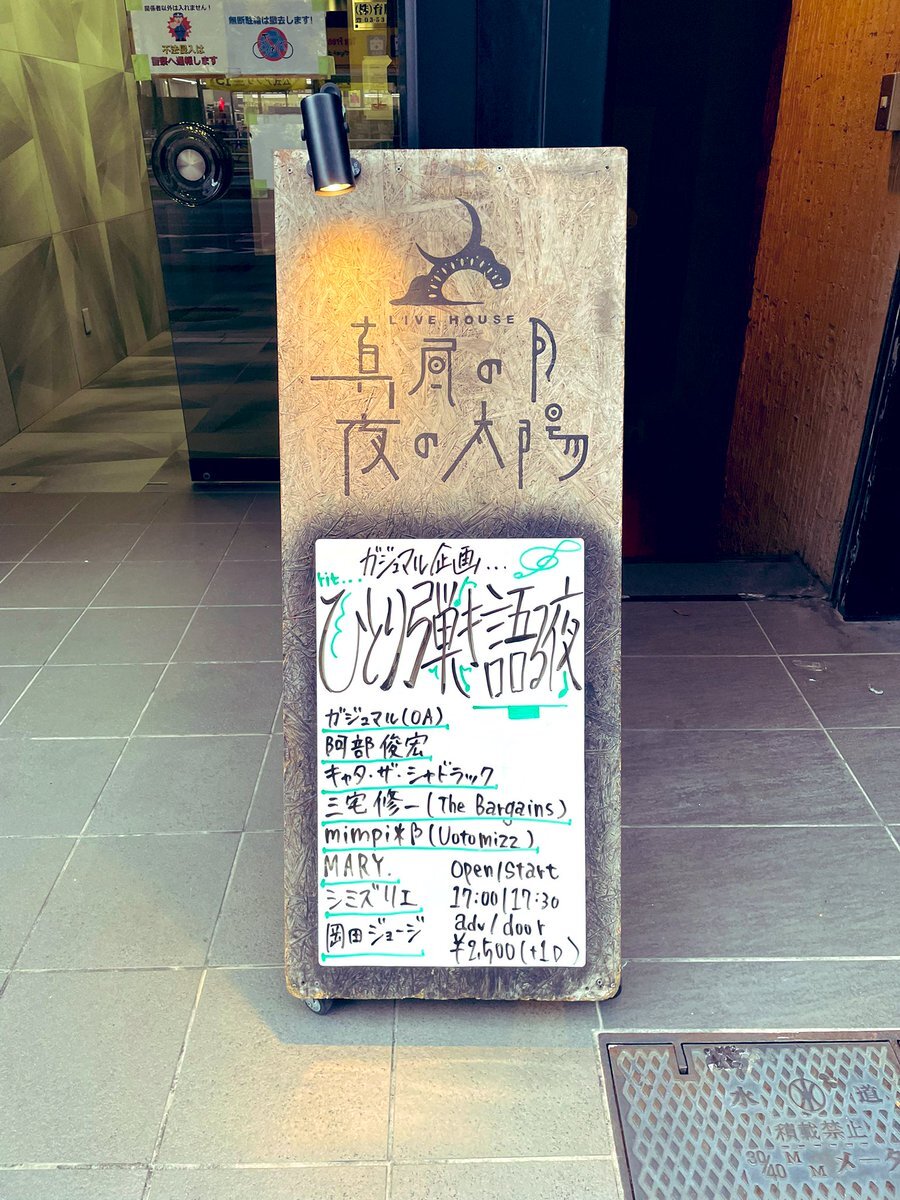 関係者以外は入れません!
不法侵入は
警察へ通報します
無断駐輪は撤去します!
LIVE HOUSE
真昼の月
夜の太陽
ガジュマル企画...
rit...
ひとり弾き語る夜
ガジュマル(OA)
阿部俊宏
キャタ・ザ・シャドラック
三宅修一(The Bargains)
mimpi*β(Uotomizz)
MARY.
シミズリエ
岡田ジョージ
Open/Start
17:00/17:30
adv/door
¥2,500(+1D)
水道
積載禁止
30/40 M M メータ